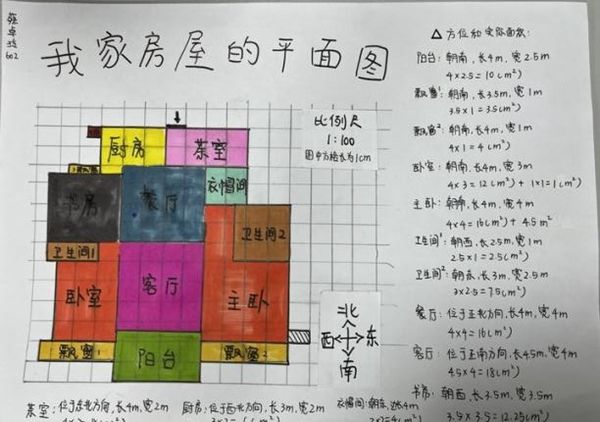 602
我家房屋的平面图
比例尺
1:100
图中方格长为1cm
厨房
茶室
书房
餐厅
衣帽间
卫生间1
卫生间2
卧室
客厅
主卧
飘窗1
阳台
飘窗2
北
西 东
南
△方位和实际面积:
阳台:朝南,长4m,宽2.5m
4×2.5=10(m²)
飘窗1:朝南,长3.5m,宽1m
3.5×1=3.5(m²)
飘窗2:朝南,长4m,宽1m
4×1=4(m²)
卧室:朝南,长4m,宽3m
4×3=12(m²)+1×1=1(m²)
主卧:朝南,长4m,宽4m
4×4=16(m²)+4.5m²
卫生间1:朝西,长2.5m,宽1m
2.5×1=2.5(m²)
卫生间2:朝东,长3m,宽2.5m
3×2.5=7.5(m²)
餐厅:位于正北方向,长4m,宽4m
4×4=16(m²)
客厅:位于正南方向,长4.5m,宽4m
4.5×4=18(m²)
书房:朝西,长3.5m,宽3.5m
3.5×3.5=12.25(m²)
茶室:位于东北方向,长4m,宽2m
厨房:位于西北方向,长3m,宽2m
衣帽间:朝东